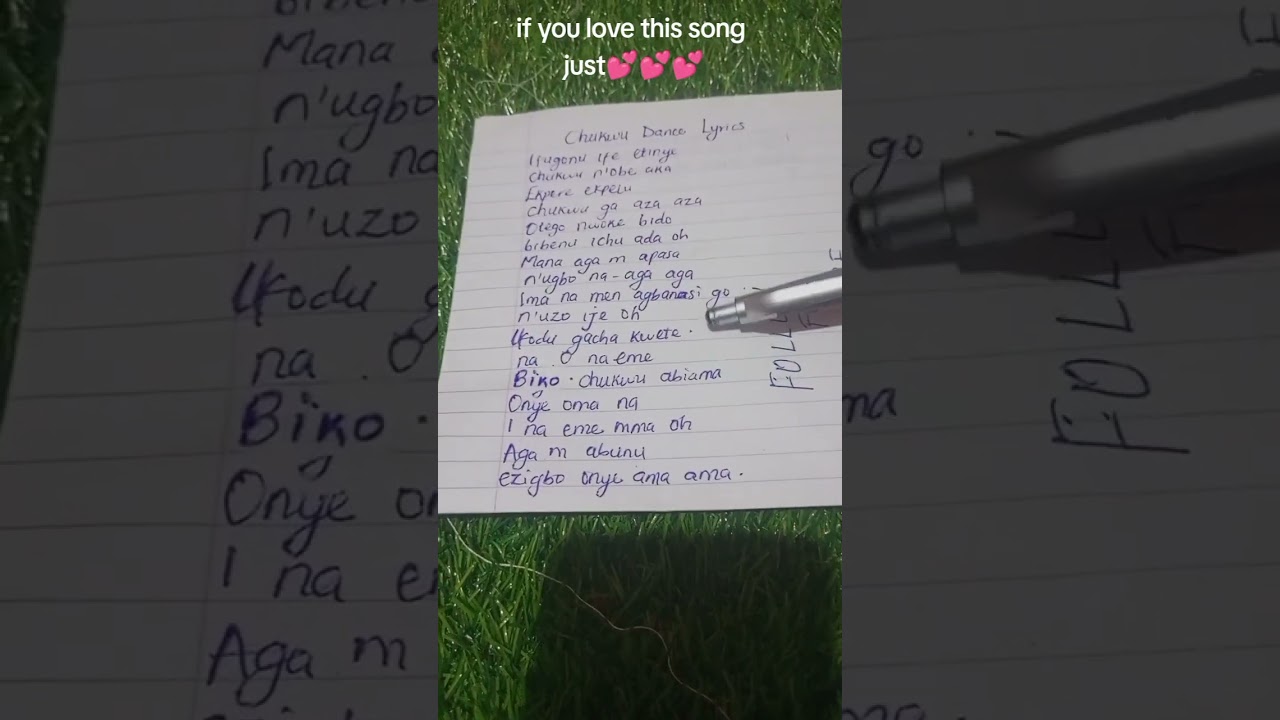 if you love this song
just💕💕💕
Chukwu Dance Lyrics
Ifugonu ife etinye
Chukwu n'obe aka
Ekpere ekpelu
Chukwu ga aza aza
Olego nwoke bido
bibenu ichu ada oh
Mana aga m apasa
n'ugbo na-aga aga
Ima na men agbanasi go
n'uzo ije oh
Ukodu gacha kwete.
na . O na eme
Biko . chukwu abiama
Onye oma na
I na eme mma oh
Aga m abunu
ezigbo onye ama ama.